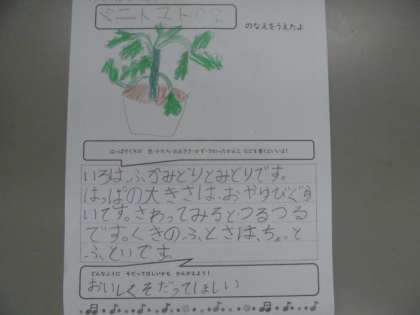 ミニトマト
のなえをうえたよ
いろは、ふかみどりとみどりです。
はっぱの大きさは、おやゆびぐら
いです。さわってみるとつるつる
です。くきのふとさは、ちょっと
ふといです。
どんなふうに そだってほしいかな かんがえよう!
おいしくそだってほしい